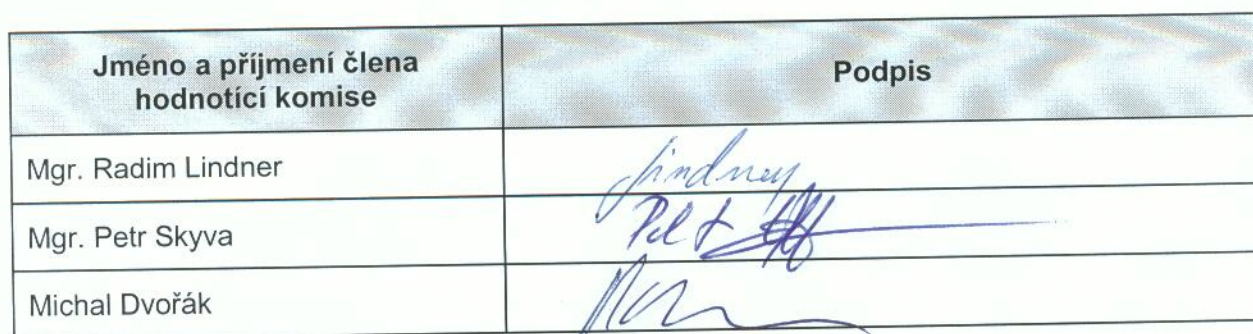 Jméno a příjmení člena
hodnotící komise
Podpis
Mgr. Radim Lindner
Lindner
Mgr. Petr Skyva
Michal Dvořák